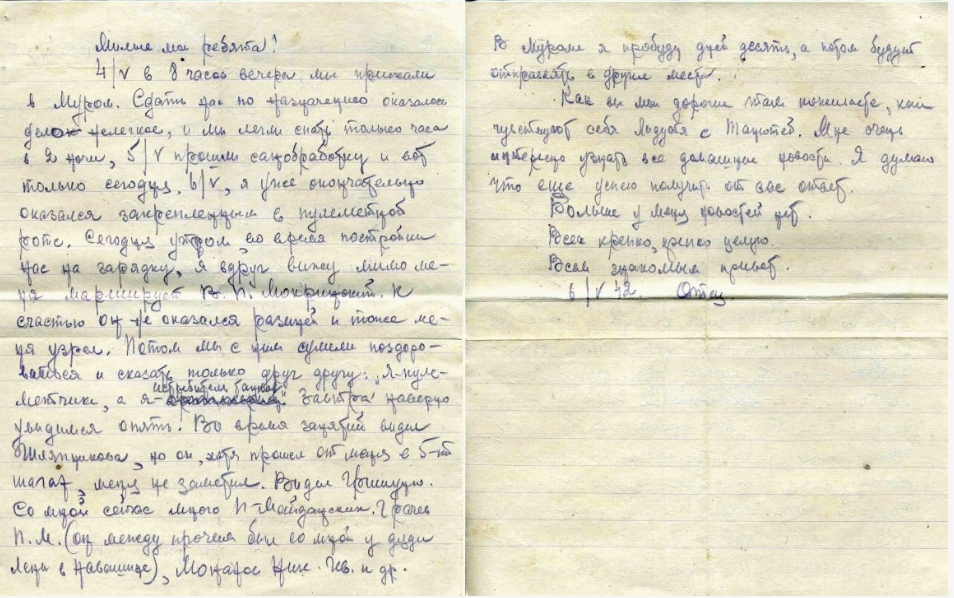 Милые мои ребята!
4/V в 8 часов вечера мы приехали
в Муром. Сдать нас по назначению оказалось
дело нелегкое, и мы легли спать только часа
в 2 ночи, 5/V прошли санобработку и вот
только сегодня, 6/V, я уже окончательно
оказался закрепленным в пулеметной
роте. Сегодня утром, во время постройки
нас на зарядку, я вдруг вижу мимо ме-
ня марширует В. П. Мокринский. К
счастью он не оказался разиней и тоже ме-
ня узрел. Потом мы с ним сумели поздоро-
ваться и сказать только друг другу: "Я-пуле-
метчик, а я-истребитель танков". Завтра наверно
увидимся опять. Во время занятий видел
Шляпникова, но он, хотя прошел от меня в 5-ти
шагах, меня не заметил. Видел
Со мной сейчас много П-Майданских. Грачев
П.М. (он между прочем был со мной у дяди
Лени в Навашине), Ник. Ив. и др.
В Муроме я пробуду дней десять, а потом будут
отправлять в другие места.
Как вы мои дорогие там поживаете, как
чувствуют себя с Танютей. Мне очень
интересно узнать все домашние новости. Я думаю
что еще успею получить от вас ответ.
Больше у меня новостей нет.
Всех крепко, крепко целую.
Всем знакомым привет.
6/V 42. Отец.